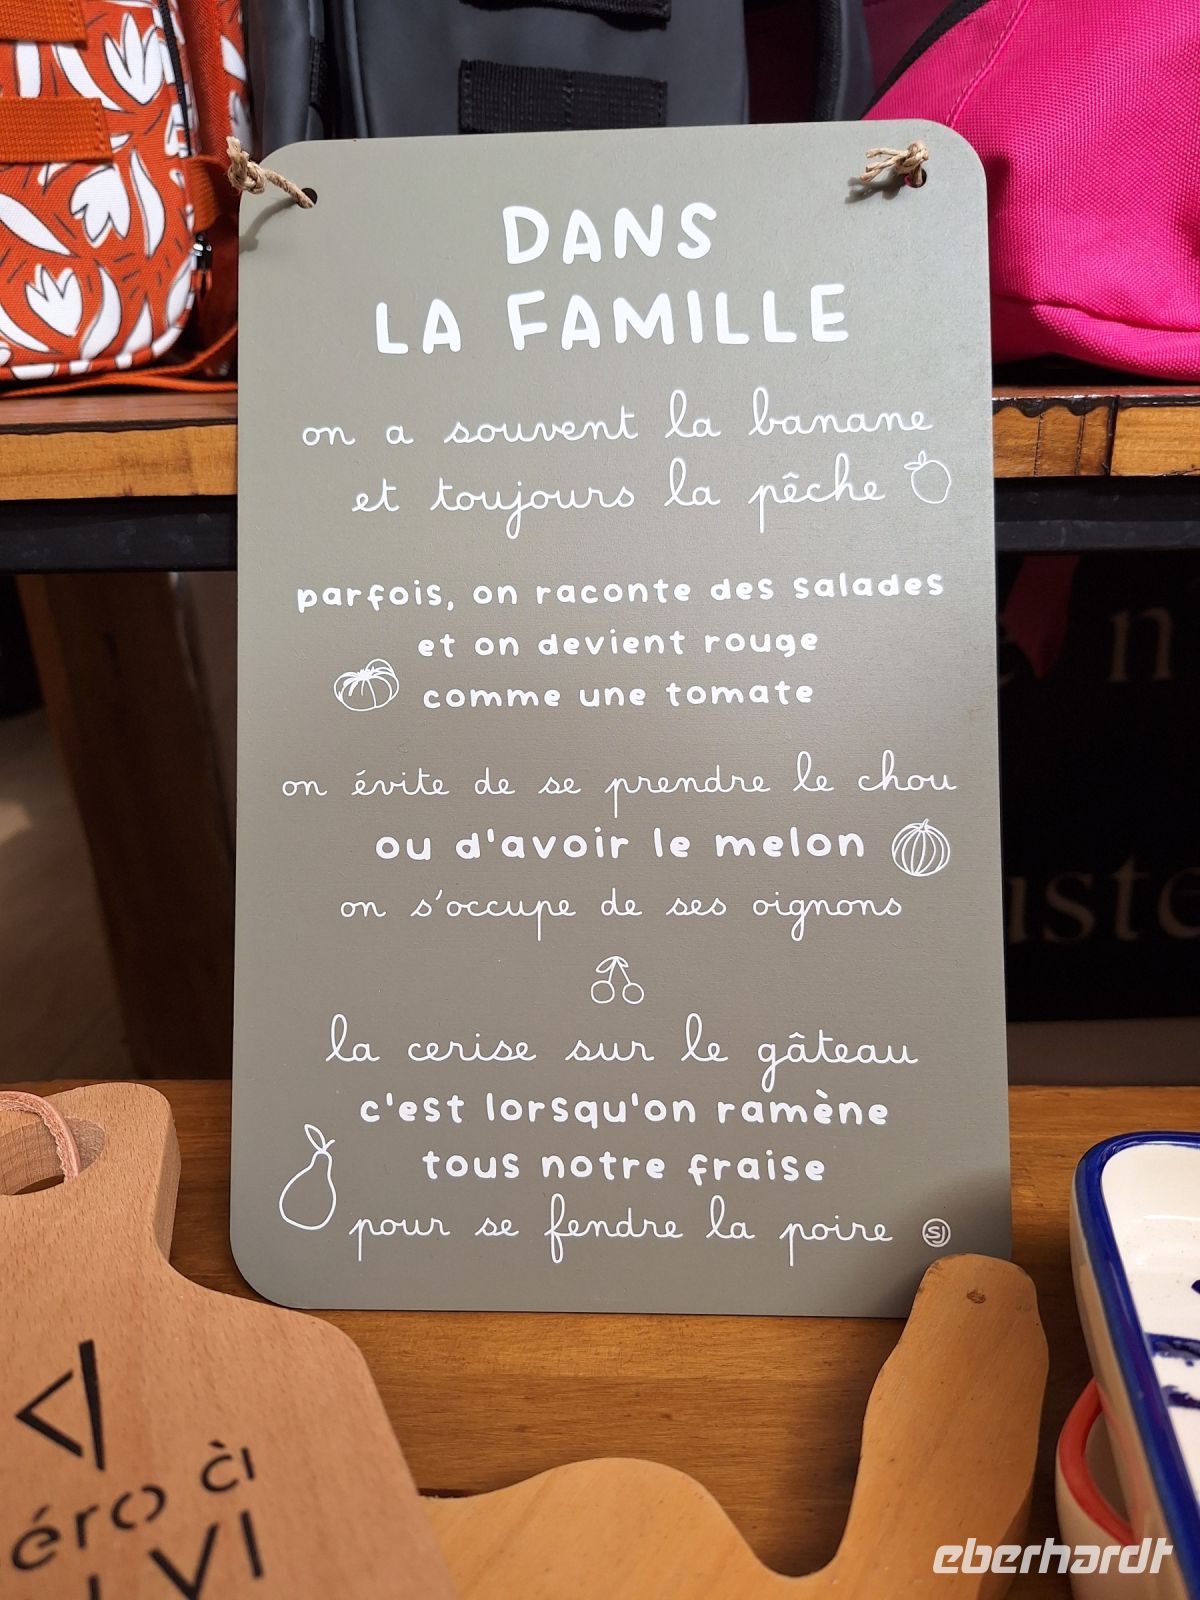 DANS
LA FAMILLE
on a souvent la banane
et toujours la pêche
parfois, on raconte des salades
et on devient rouge
comme une tomate
on évite de se prendre le chou
ou d'avoir le melon
on s'occupe de ses oignons
la cerise sur le gâteau
c'est lorsqu'on ramène
tous notre fraise
pour se fendre la poire
SJ
eberhardt